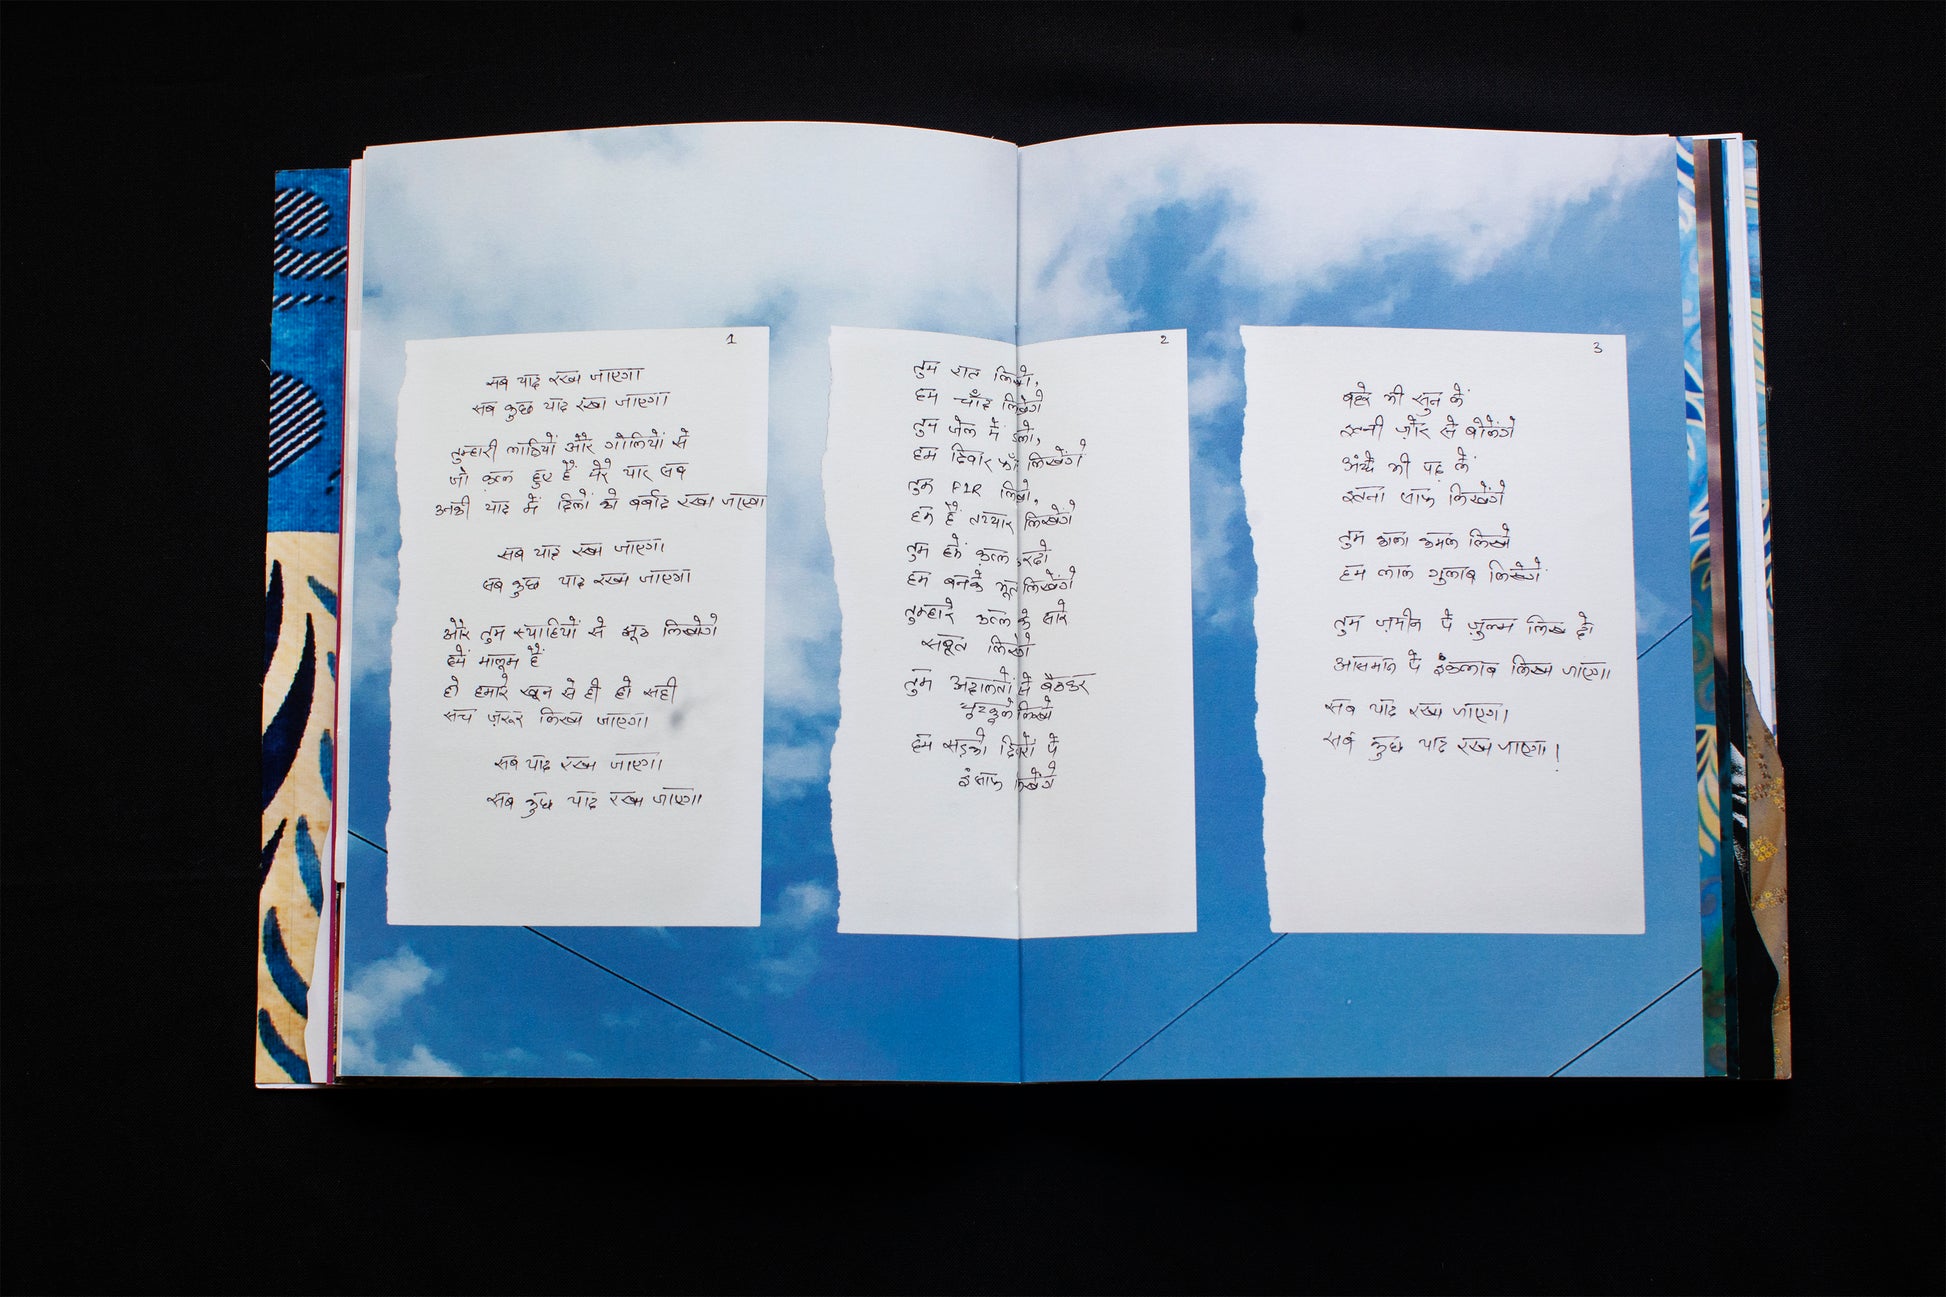 1
सब याद रखा जाएगा
सब कुछ याद रखा जाएगा
तुम्हारी लाठियों और गोलियों से
जो क़त्ल हुए हैं मेरे यार सब
उनकी याद में दिलों को बर्बाद रखा जाएगा
सब याद रखा जाएगा
सब कुछ याद रखा जाएगा
और तुम स्याहियों से झूठ लिखोगे
हमें मालूम है
हो हमारे खून से ही हो सही
सच ज़रूर लिखा जाएगा
सब याद रखा जाएगा
सब कुछ याद रखा जाएगा
2
तुम रात लिखो,
हम चाँद लिखेंगे
तुम जेल में डालो,
हम दिवार फाँद लिखेंगे
तुम FIR लिखो,
हम हैं तय्यार लिखेंगे
तुम हमें क़त्ल करदो
हम बनके भूत लिखेंगे
तुम्हारे क़त्ल के सारे
सबूत लिखेंगे
तुम अदालतों से बैठकर
चुटकुले लिखो
हम सड़कों दिवारों पे
इंसाफ लिखेंगे
3
बहरे भी सुन लें
इतनी ज़ोर से बोलेंगे
अंधे भी पढ़ लें
इतना साफ लिखेंगे
तुम काला कमल लिखो
हम लाल गुलाब लिखेंगे
तुम ज़मीन पे ज़ुल्म लिख दो
आसमान पे इंकलाब लिखा जाएगा
सब याद रखा जाएगा
सब कुछ याद रखा जाएगा!